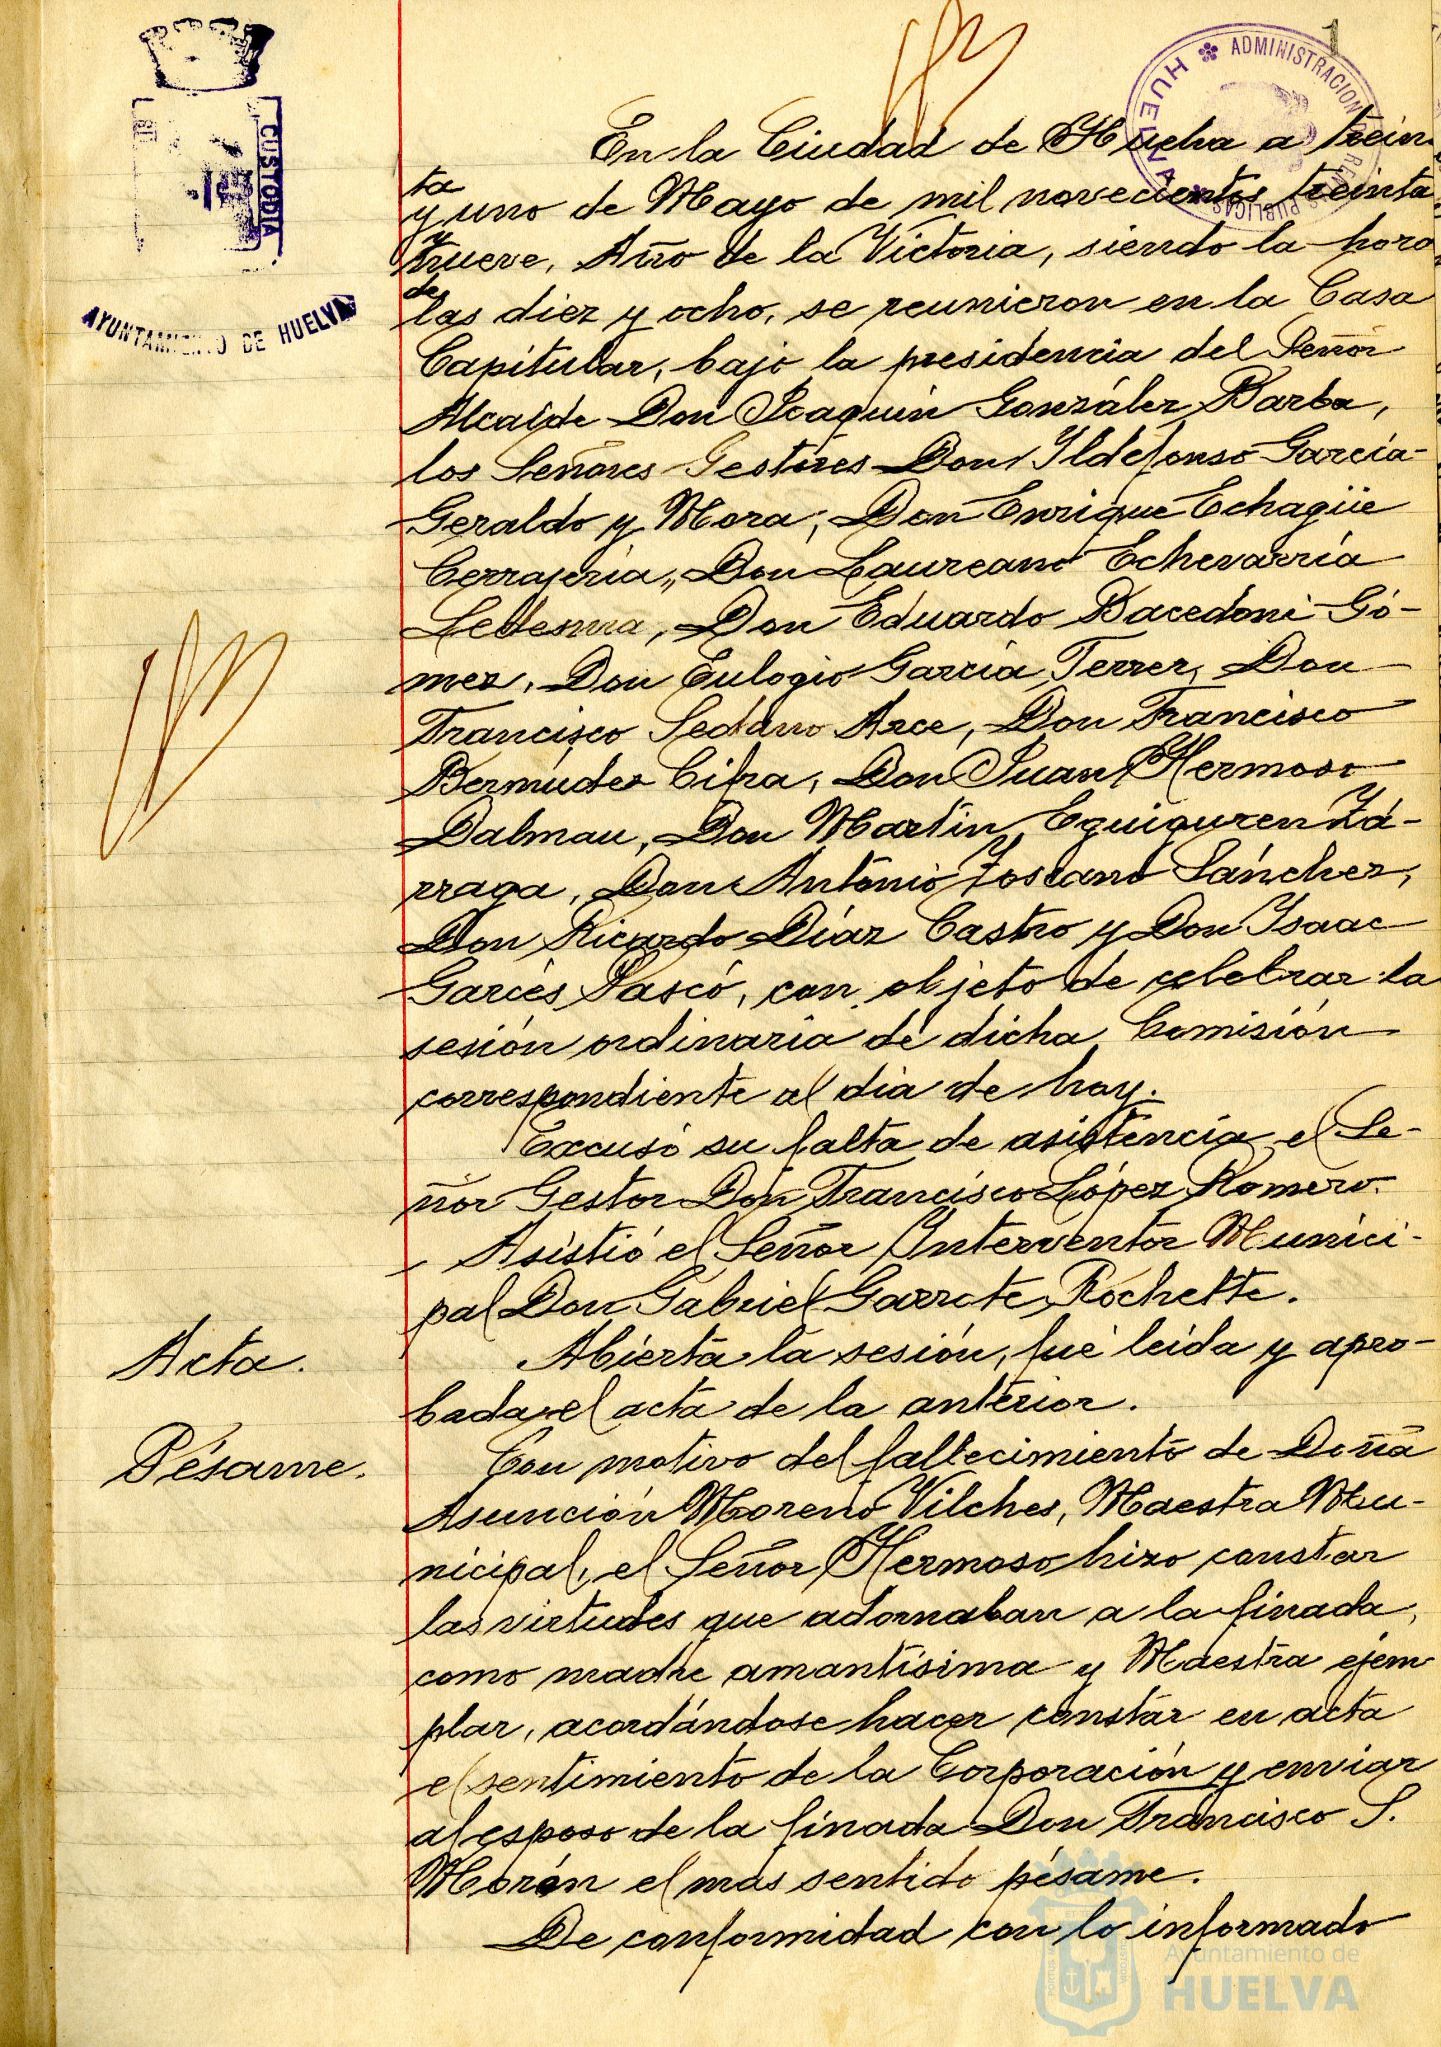 1
ADMINISTRACION DE RENTAS PUBLICAS
HUELVA
CUSTODIA
AYUNTAMIENTO DE HUELVA
En la Ciudad de Huelva a trein
ta
y uno de Mayo de mil novecientos treinta
y
nueve, Año de la Victoria, siendo la hora
de
las diez y ocho, se reunieron en la Casa
Capitular, bajo la presidencia del Señor
Alcalde Don Joaquín González Barba,
los Señores Gestores Don Ildefonso García-
Geraldo y Mora, Don Enrique Echagüe
Cerrajería, Don Laureano Echevarría
Ledesma, Don Eduardo Bacedoni Gó-
mez, Don Eulogio García Terrer, Don
Francisco Sedano Arce, Don Francisco
Bermúdez Cifra, Don Juan Hermoso
Dalmau, Don Martín Eguiguren Zá-
rraga, Don Antonio Toscano Sánchez,
Don Ricardo Díaz Castro y Don Isaac
Garcés Pascó, con objeto de celebrar la
sesión ordinaria de dicha Comisión
correspondiente al día de hoy.
Excusó su falta de asistencia el Se-
ñor Gestor Don Francisco López Romero.
Asistió el Señor Interventor Munici-
pal Don Gabriel Garrote Rochette.
Acta.
Abierta la sesión, fué leída y apro-
bada el acta de la anterior.
Pésame.
Con motivo del fallecimiento de Doña
Asunción Moreno Vilches, Maestra Mu-
nicipal, el Señor Hermoso hizo constar
las virtudes que adornaban a la finada,
como madre amantísima y Maestra ejem
plar, acordándose hacer constar en acta
el sentimiento de la Corporación y enviar
al esposo de la finada Don Francisco S.
Morón el mas sentido pésame.
De conformidad con lo informado
Ayuntamiento de
HUELVA